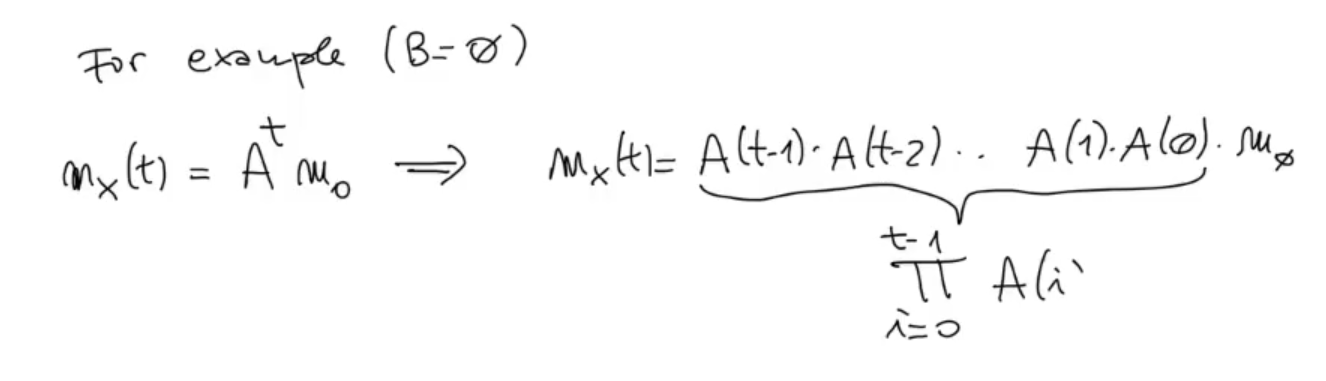 For example (B=∅)
mₓ(t) = Aᵗ m₀ ⟹ mₓ(t)= A(t-1)·A(t-2)·.. A(1).A(∅)·m∅
t-1
∏ A(i)
i=0